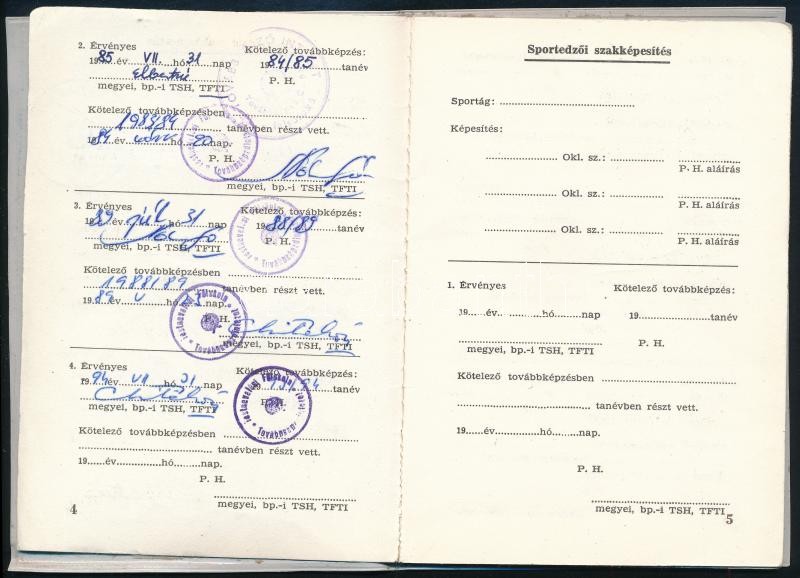 2. Érvényes
Kötelező továbbképzés:
1985 év VII. hó 31 nap
1984/85 tanév
P. H.
megyei, bp.-i TSH, TFTI
Kötelező továbbképzésben
1983/84 tanévben részt vett.
1984 év hó 20 nap.
P. H.
megyei, bp.-i TSH, TFTI
3. Érvényes
Kötelező továbbképzés:
1989 év júl hó 31 nap
1988/89 tanév
P. H.
megyei, bp.-i TSH, TFTI
Kötelező továbbképzésben
1988/89 tanévben részt vett.
1989 év V hó nap.
P. H.
megyei, bp.-i TSH, TFTI
4. Érvényes
Kötelező továbbképzés:
1994 év VII hó 31 nap
94 tanév
P. H.
megyei, bp.-i TSH, TFTI
Kötelező továbbképzésben
tanévben részt vett.
19......év............hó......nap.
P. H.
megyei, bp.-i TSH, TFTI
4
Sportedzői szakképesítés
Sportág:
Képesítés:
Okl. sz.:
P. H. aláírás
Okl. sz.:
P. H. aláírás
Okl. sz.:
P. H. aláírás
1. Érvényes
Kötelező továbbképzés:
19......év............hó......nap
19............tanév
megyei, bp.-i TSH, TFTI
P. H.
Kötelező továbbképzésben
tanévben részt vett.
19......év............hó......nap.
P. H.
megyei, bp.-i TSH, TFTI
5